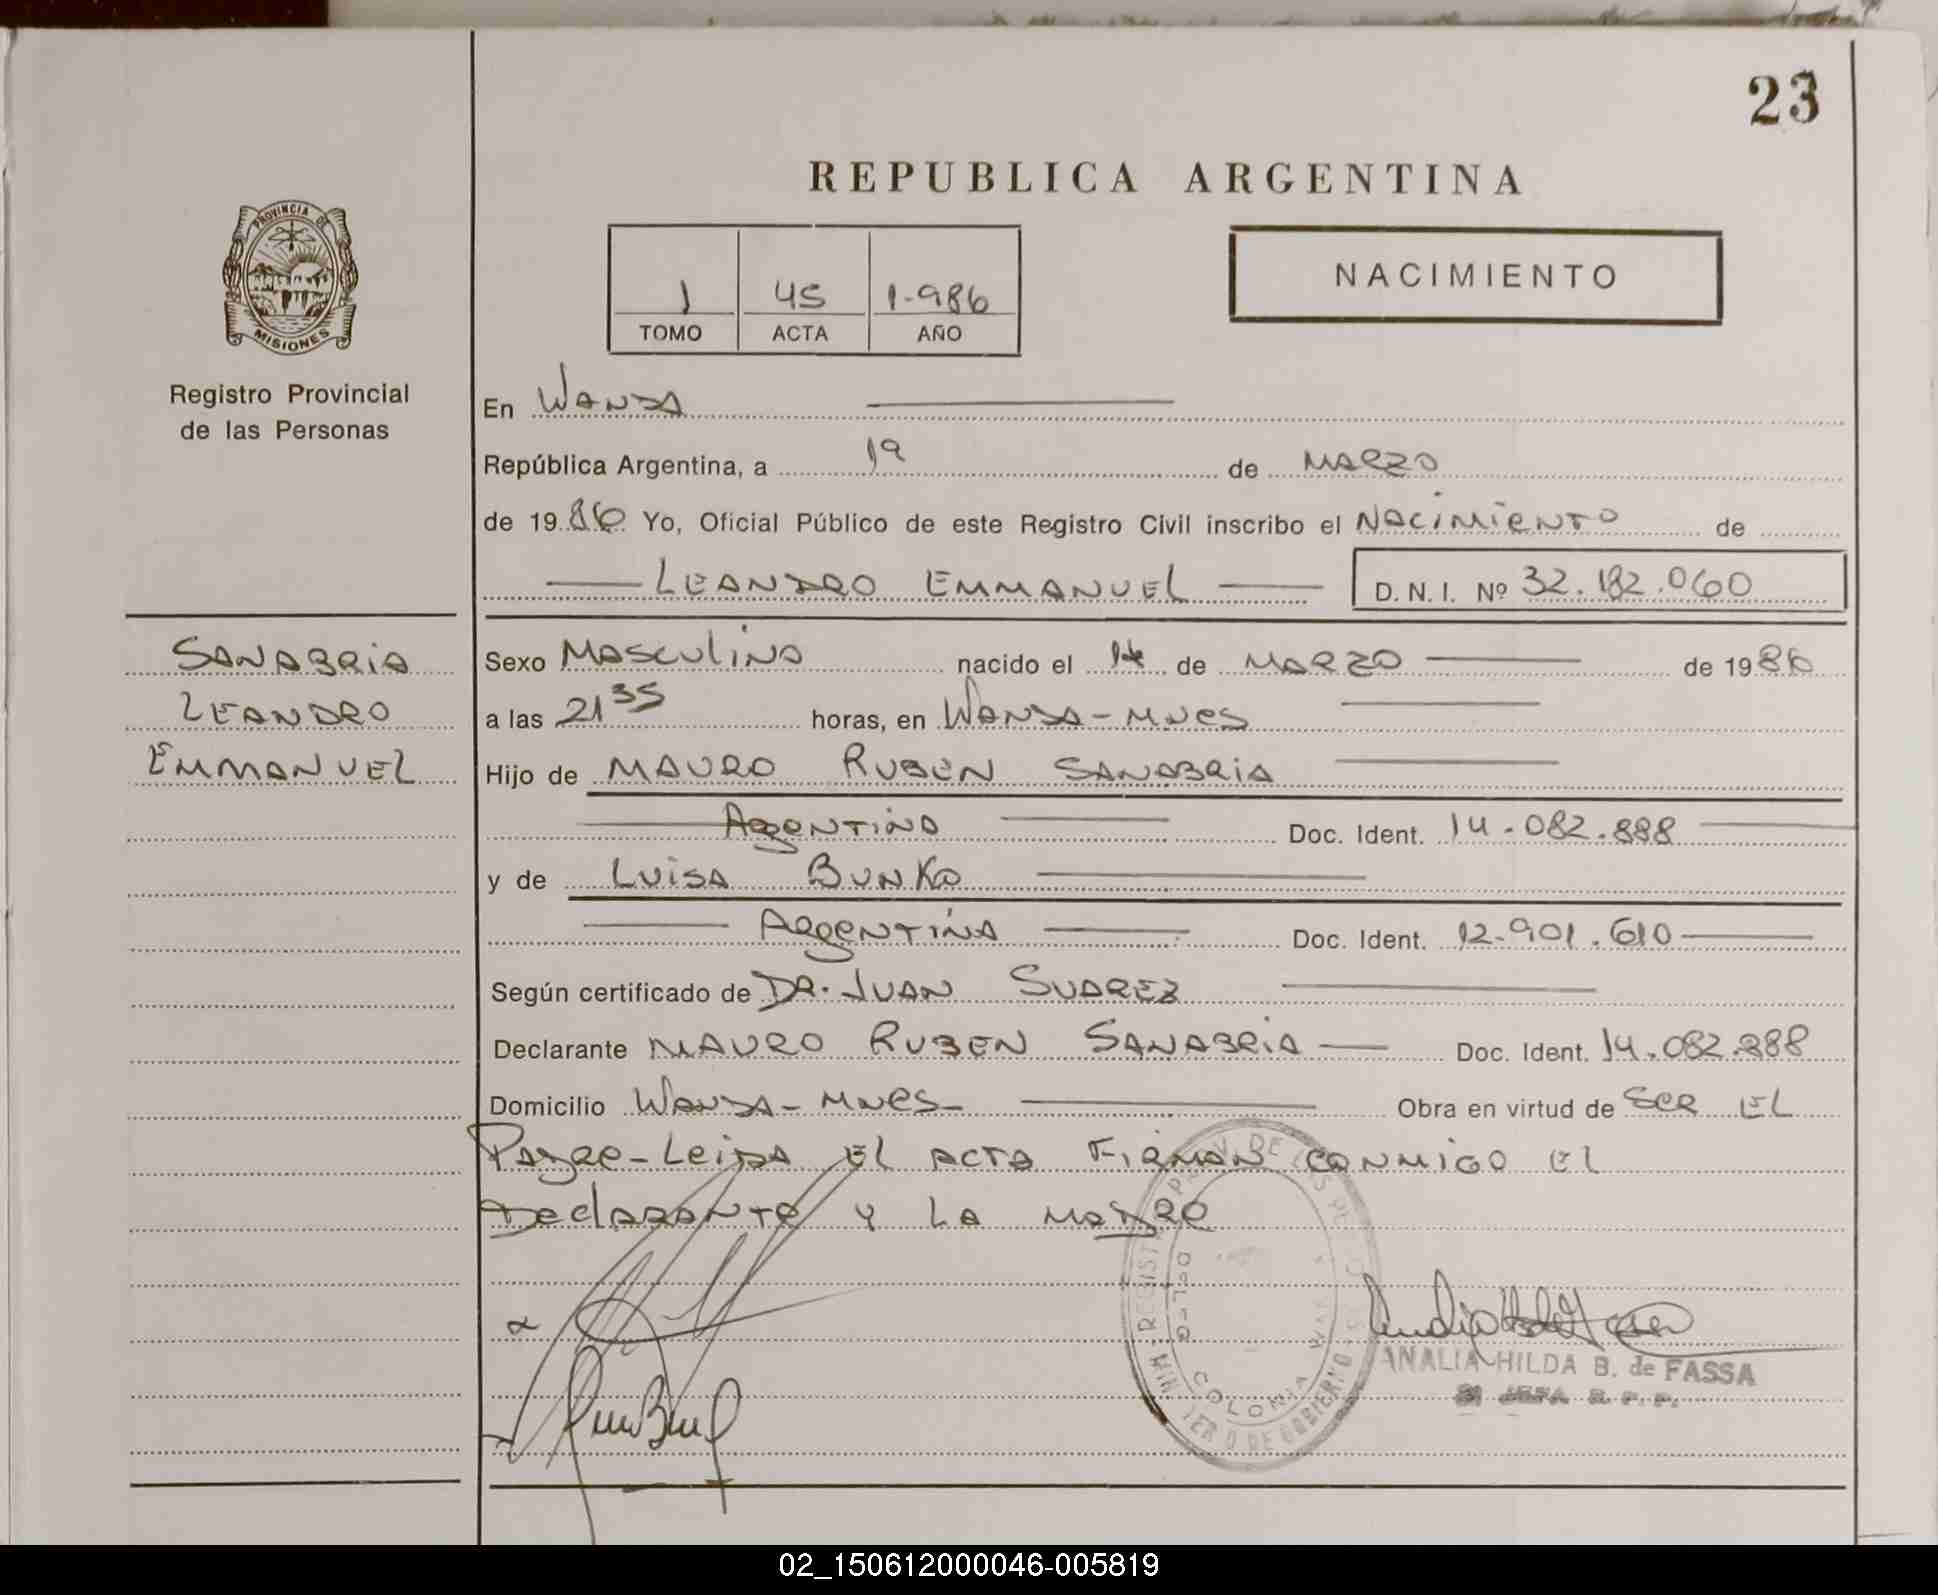 23
REPUBLICA ARGENTINA
PROVINCIA DE
MISIONES
Registro Provincial
de las Personas
1 45 1-986
TOMO ACTA AÑO
NACIMIENTO
En Wanda
República Argentina, a 19 de Marzo
de 1986 Yo, Oficial Público de este Registro Civil inscribo el Nacimiento de
LEANDRO EMMANUEL D.N.I. Nº 32.182.060
SANABRIA
LEANDRO
EMMANUEL
Sexo Masculino nacido el de MARZO de 1986
a las 21 35 horas, en Wanda - Mnes
Hijo de MAURO RUBEN SANABRIA
Argentino Doc. Ident. 14.082.888
y de LUISA BUNKO
Argentina Doc. Ident. 12.901.610
Según certificado de DR. JUAN SUAREZ
Declarante MAURO RUBEN SANABRIA Doc. Ident. 14.082.888
Domicilio Wanda - Mnes - Obra en virtud de ser EL
Padre - Leida el acta firman conmigo el
Declarante y la madre
COLONIA WANDA
ANALIA HILDA B. de FASSA
JEFA R. P. P.
02_150612000046-005819